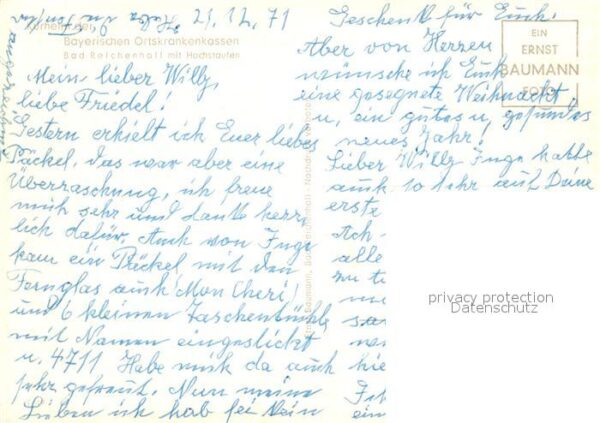 21.12.71
Kurheim der
Bayerischen Ortskrankenkassen
Bad Reichenhall mit Hochstaufen
Mein lieber Willy,
liebe Friedel!
Gestern erhielt ich Euer liebes
Päckel, das war aber eine
Überraschung, ich freue
mich sehr und danke herz-
lich dafür. Auch von Inge
kam ein Päckel mit den
Fernglas auch Mon Cheri!
und 6 kleinen Taschentühle
mit Namen eingestickt
u. 4711 Habe mich da auch
sehr gefreut. Nun meine
Lieben ich hab fei kein
Geschenk für Euch.
Aber von Herzen
wünsche ich Euch
eine gesegnete Weihnacht
u. ein gutes u. gesundes
neues Jahr!
Lieber Willy Inge hatte
auch so sehr auf Deine
erste
Ach
alle
zu
EIN
ERNST
BAUMANN
FOTO
privacy protection
Datenschutz